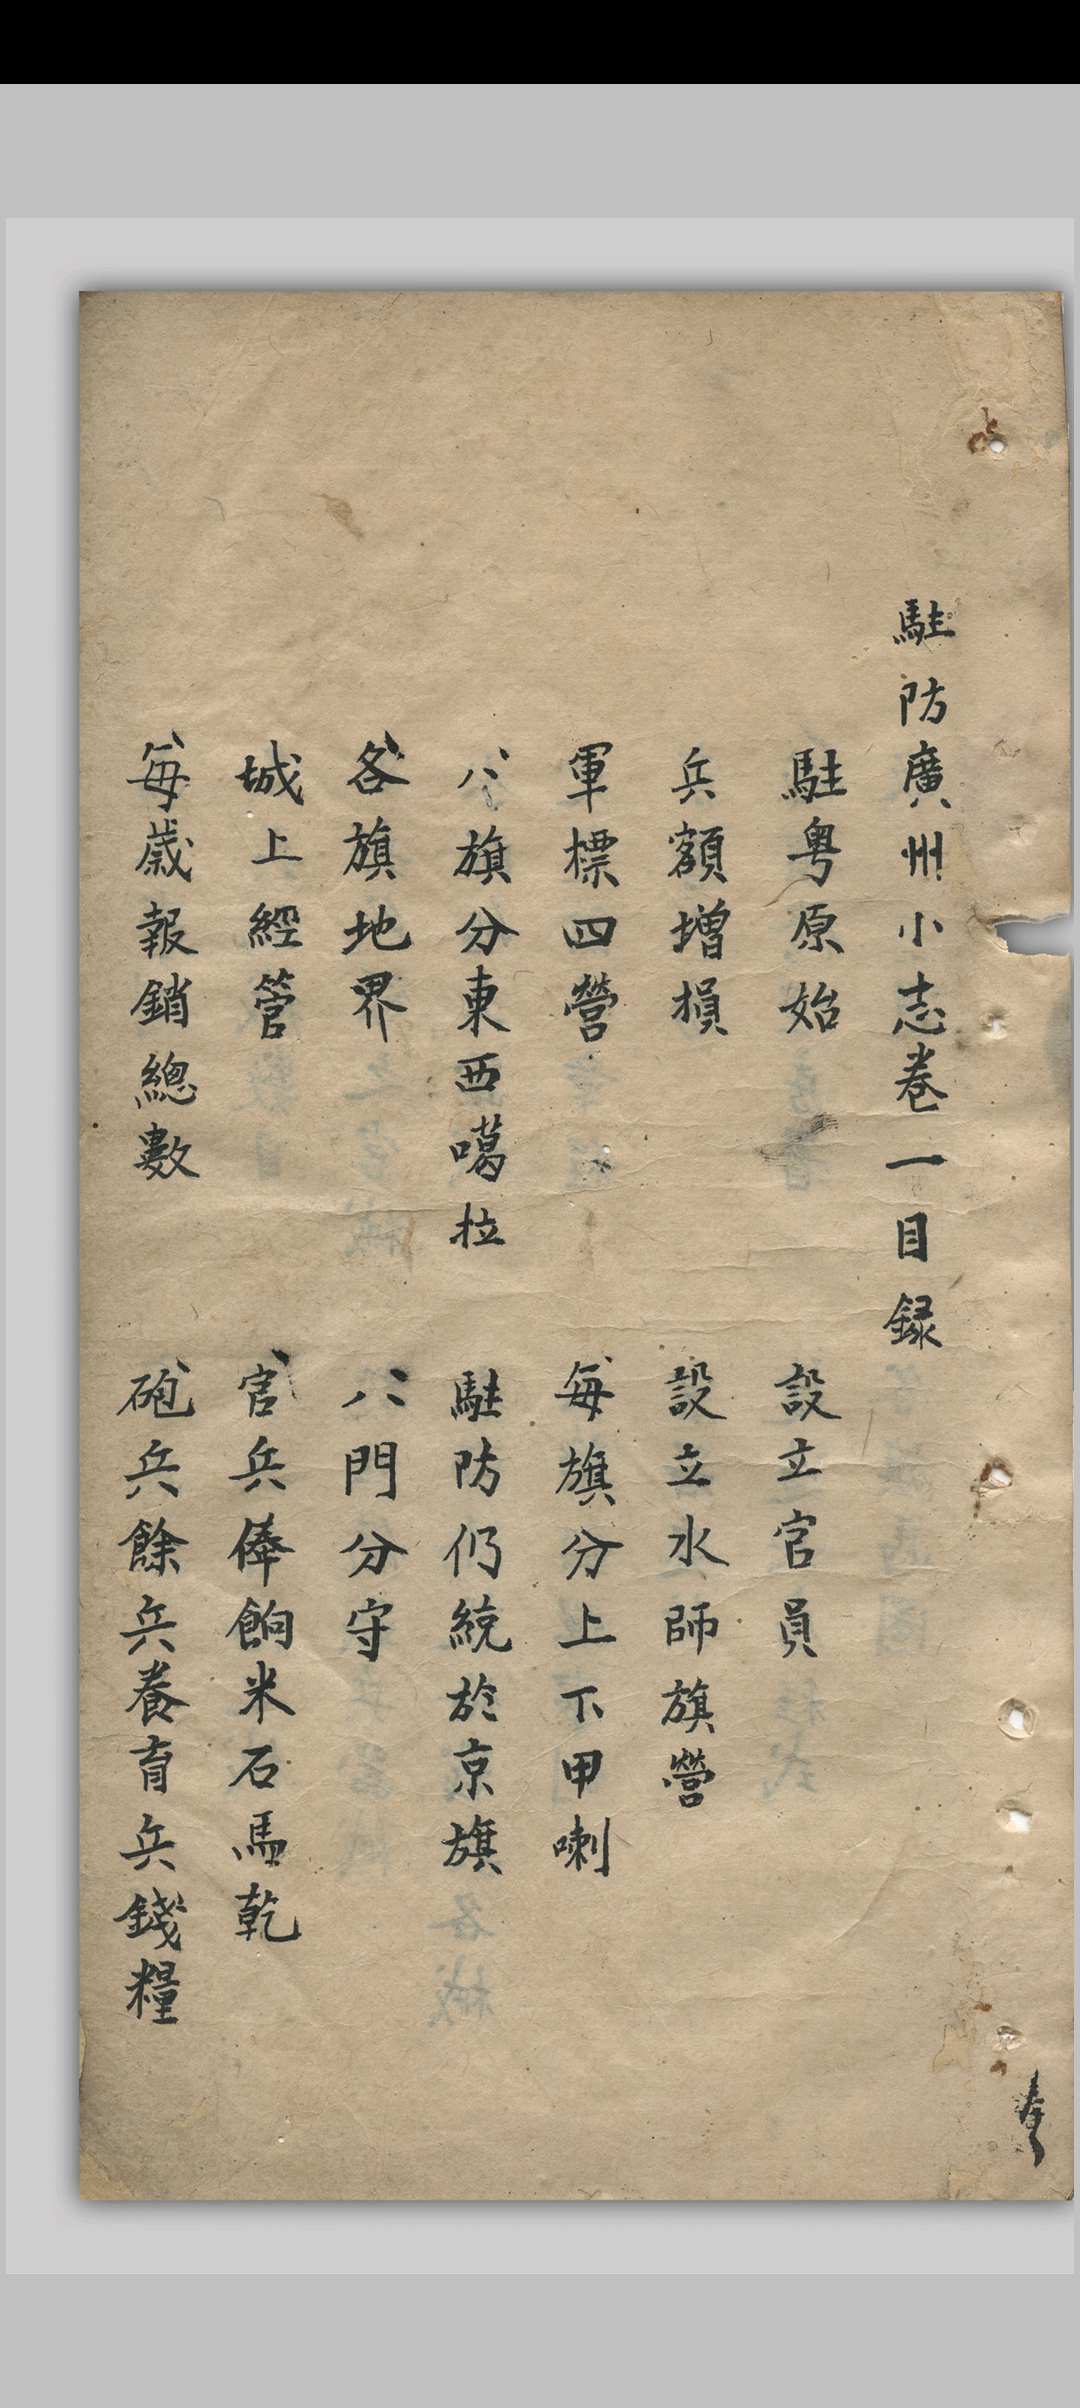 駐防廣州小志卷一目録
駐粵原始　設立官員
兵額增損　設立水師旗營
軍標四營　每旗分上下甲喇
八旗分東西噶拉　駐防仍統於京旗
各旗地界　八門分守
城上經管　官兵俸餉米石馬乾
每歲報銷總數　砲兵餘兵養育兵錢糧